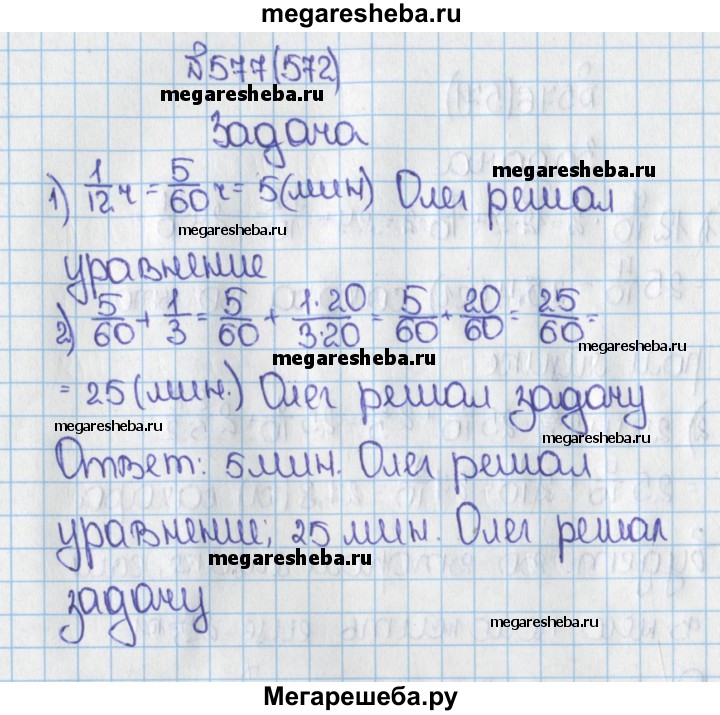 megaresheba.ru
№577(572)
megaresheba.ru
Задача
1) 1/12 ч = 5/60 ч = 5 (мин) Олег решал
megaresheba.ru
уравнение
2) 5/60 + 1/3 = 5/60 + 1·20/3·20 = 5/60 + 20/60 = 25/60 =
megaresheba.ru
megaresheba.ru
= 25 (мин.) Олег решал задачу
megaresheba.ru
megaresheba.ru
Ответ: 5 мин. Олег решал
уравнение; 25 мин. Олег решал
megaresheba.ru
задачу
megaresheba.ru
Мегарешеба.ру